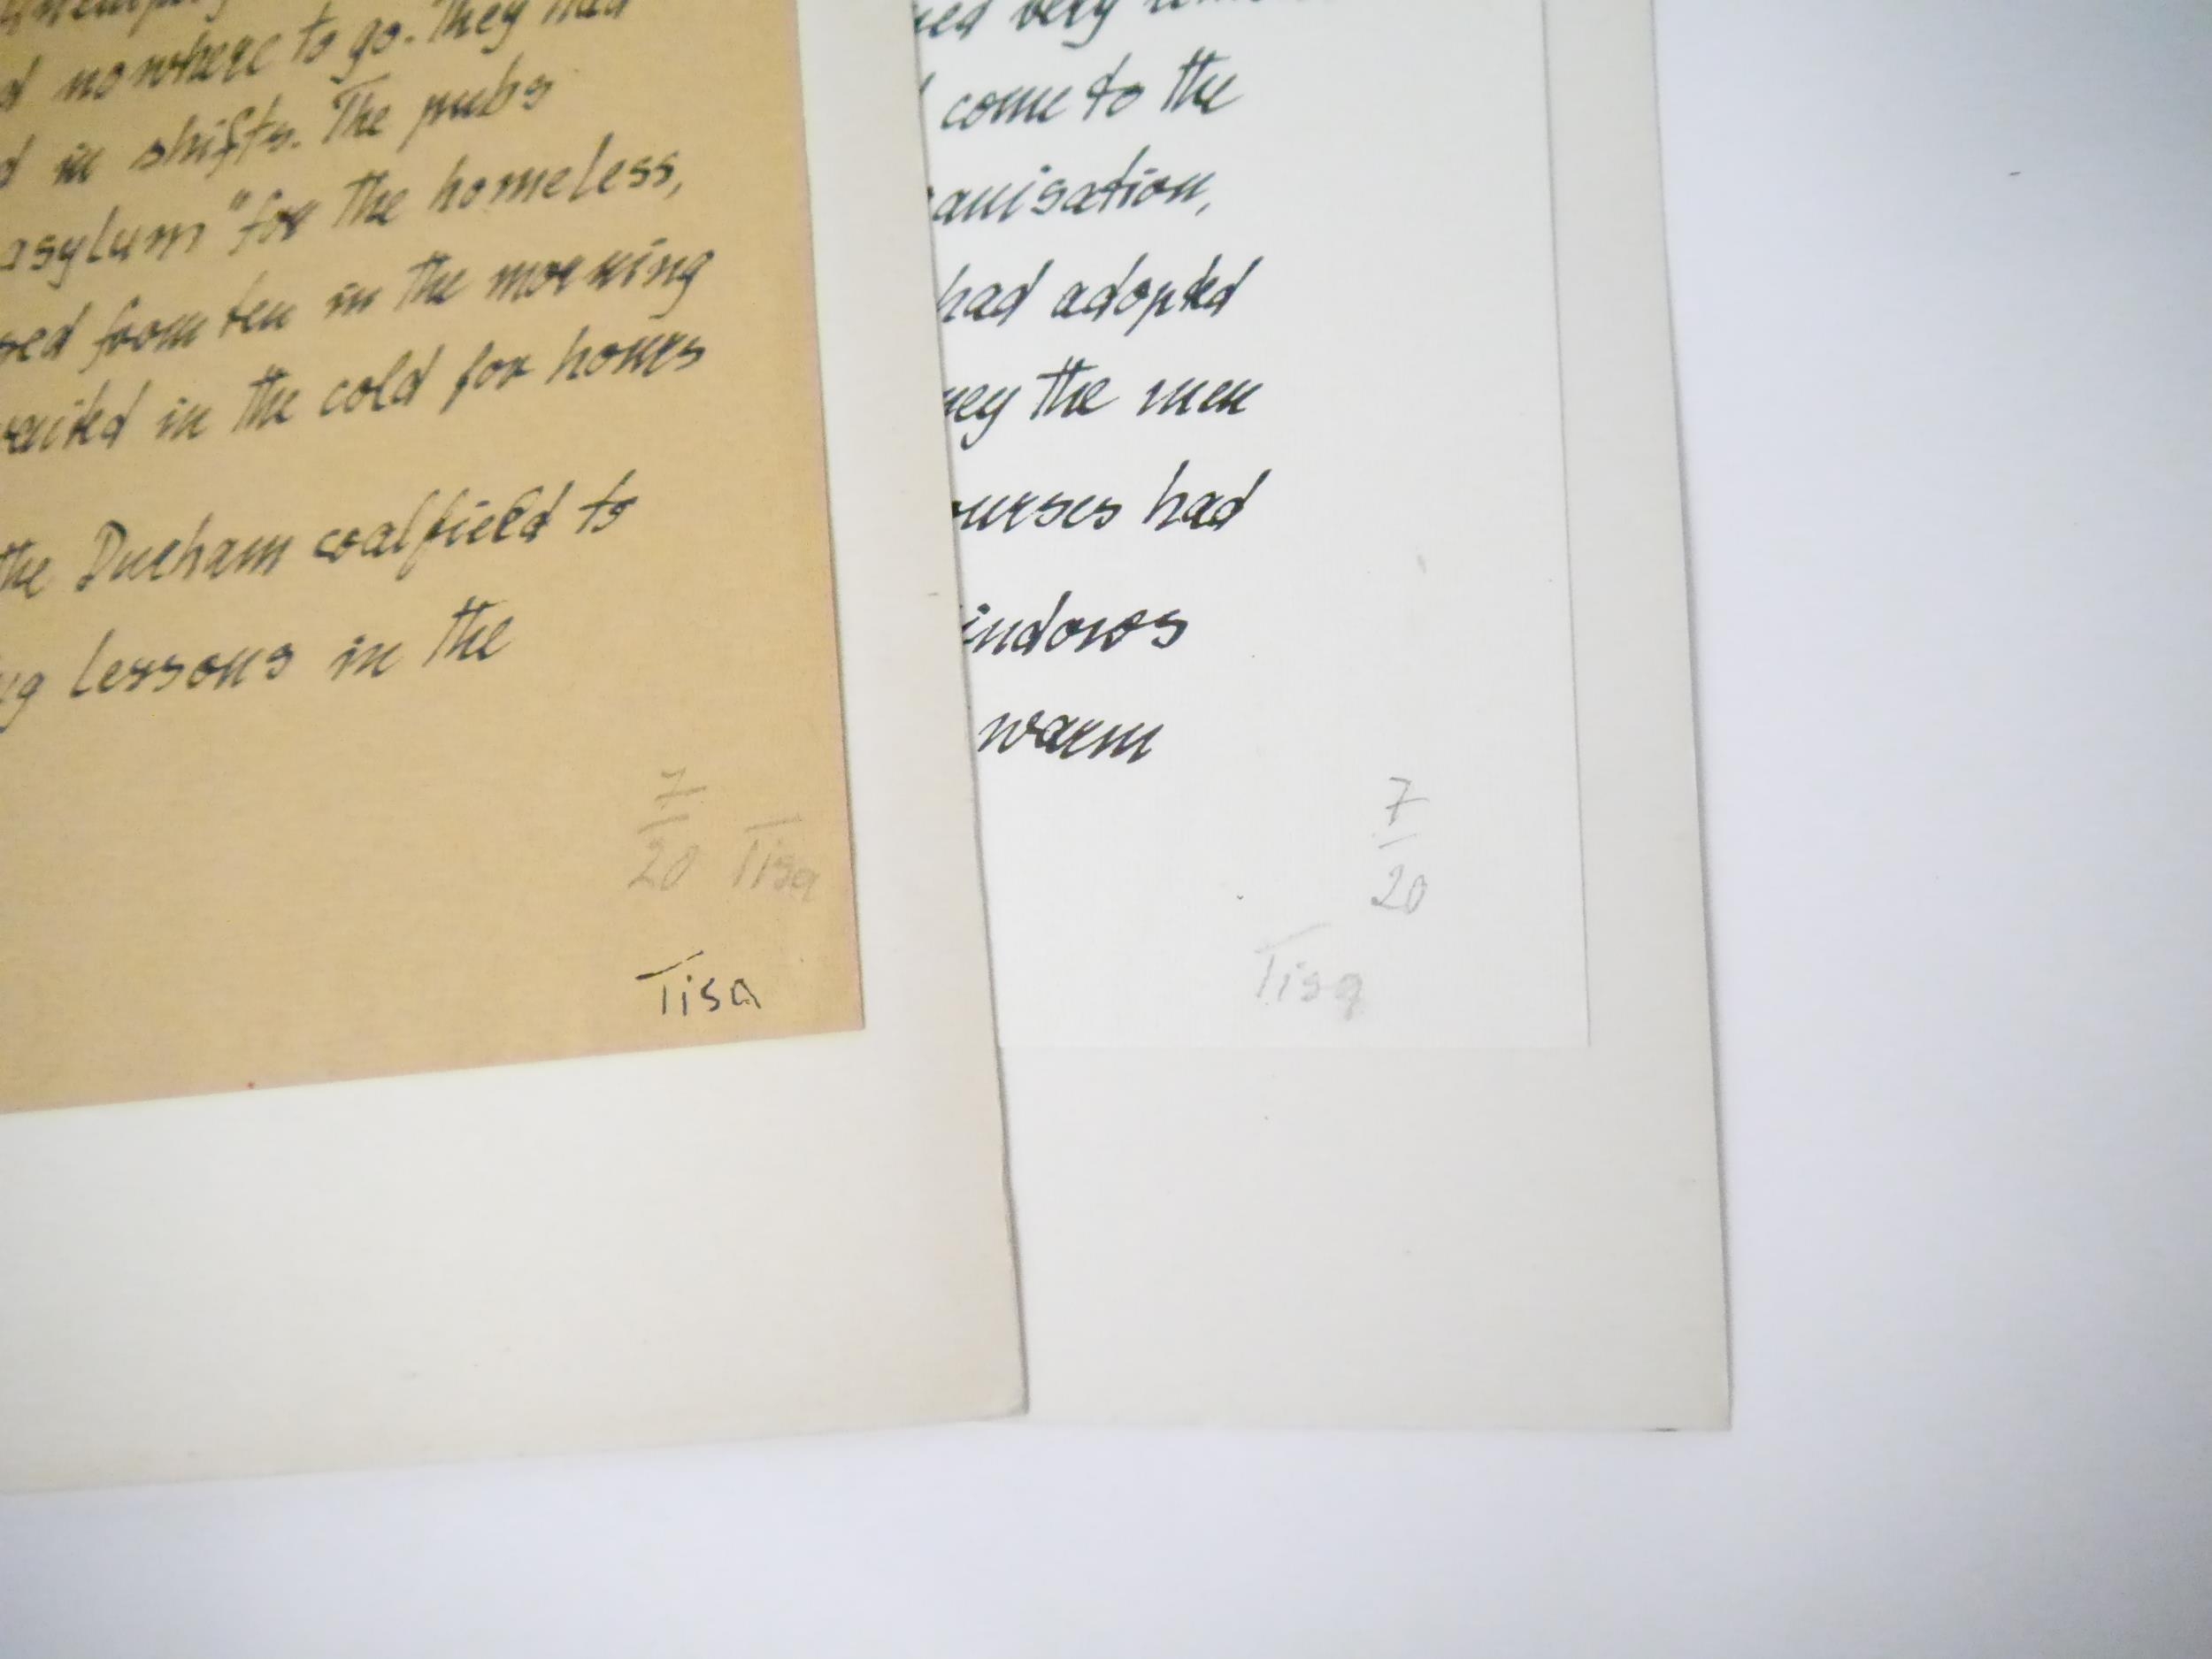 nowhere to go. They had
in shifts. The pubs
asylum" for the homeless,
from ten in the morning
in the cold for hours
the Durham coalfield to
lessons in the
7
20 Tisa
Tisa
very
come to the
anisation,
had adopted
ney the men
ourses had
indows
warm
7
20
Tisa